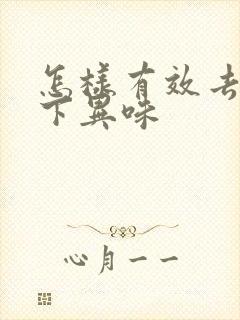 怎样有效去
下異味
心月一一